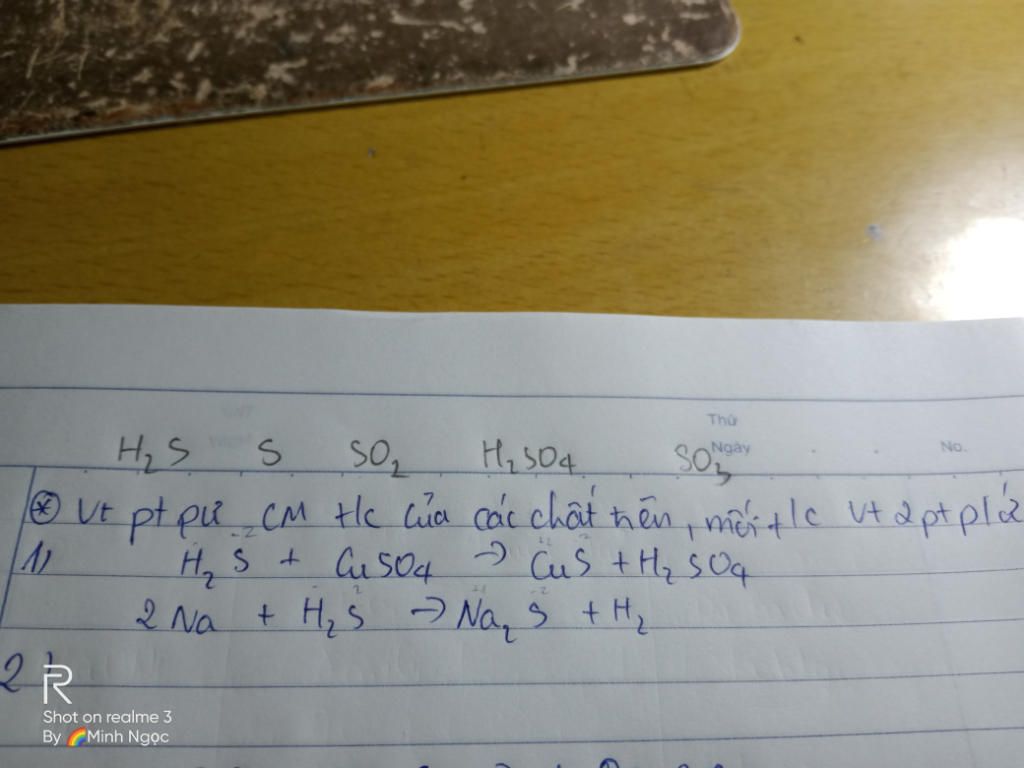 Thứ
Ngày No.
H₂S S SO₂ H₂SO₄ SO₃
* Vt pt pứ CM t/c của các chất trên, mỗi t/c vt 2 pt p/ứ
1) H₂S + CuSO₄ → CuS + H₂SO₄
2Na + H₂S → Na₂S + H₂
2)
R
Shot on realme 3
By 🌈Minh Ngọc